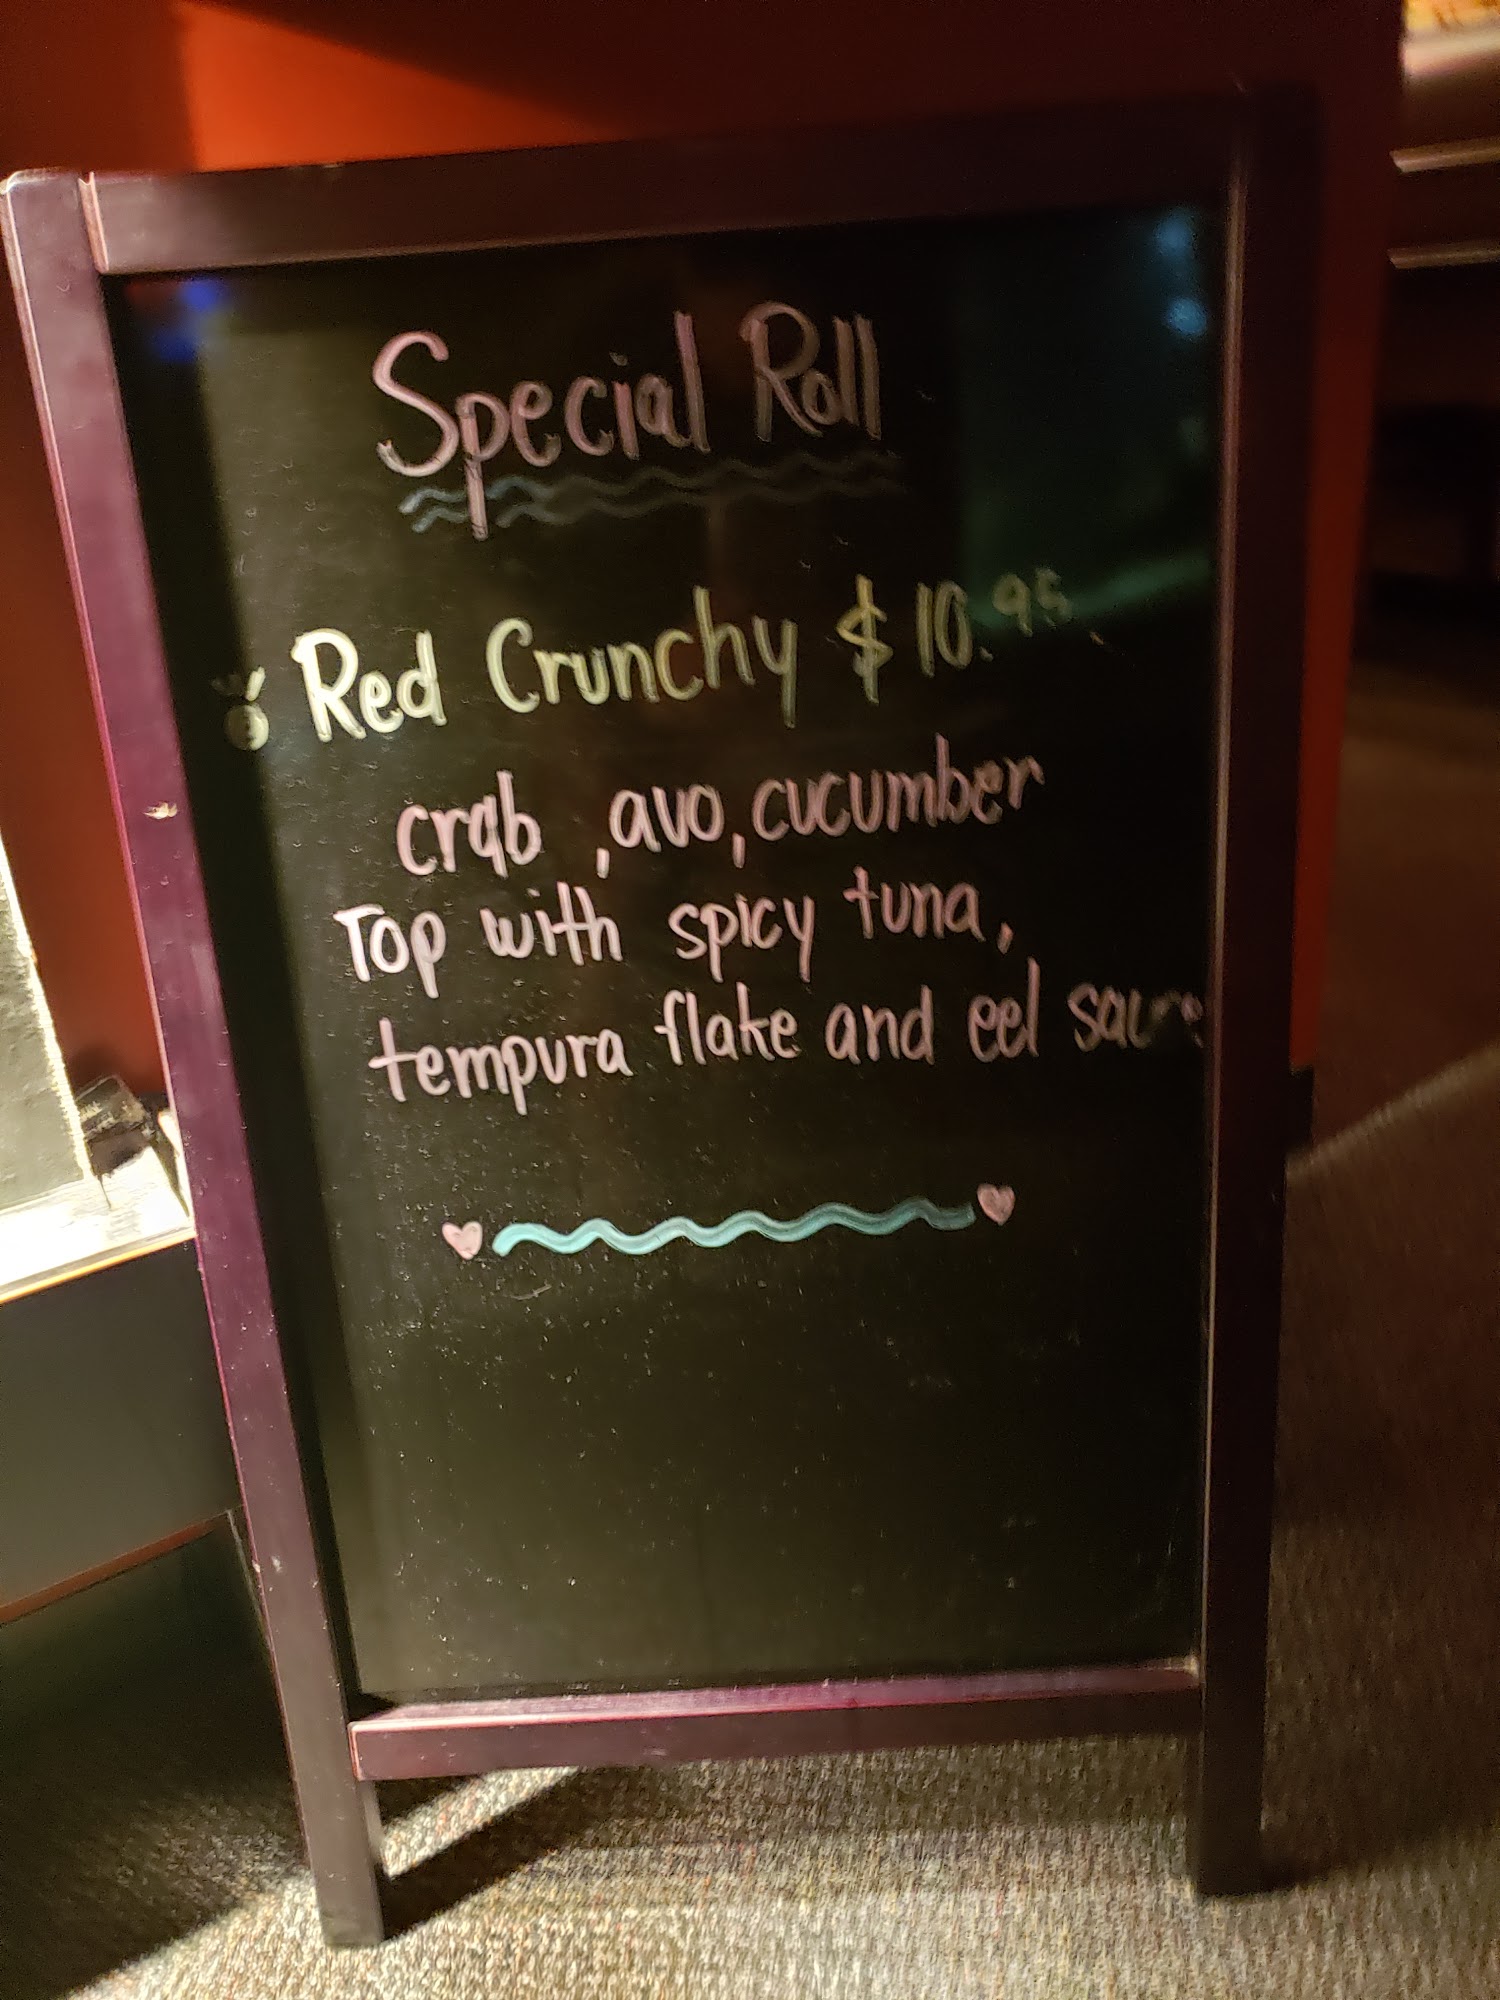 Special Roll
Red Crunchy $10.95
crab, avo, cucumber
Top with spicy tuna,
tempura flake and eel sauce